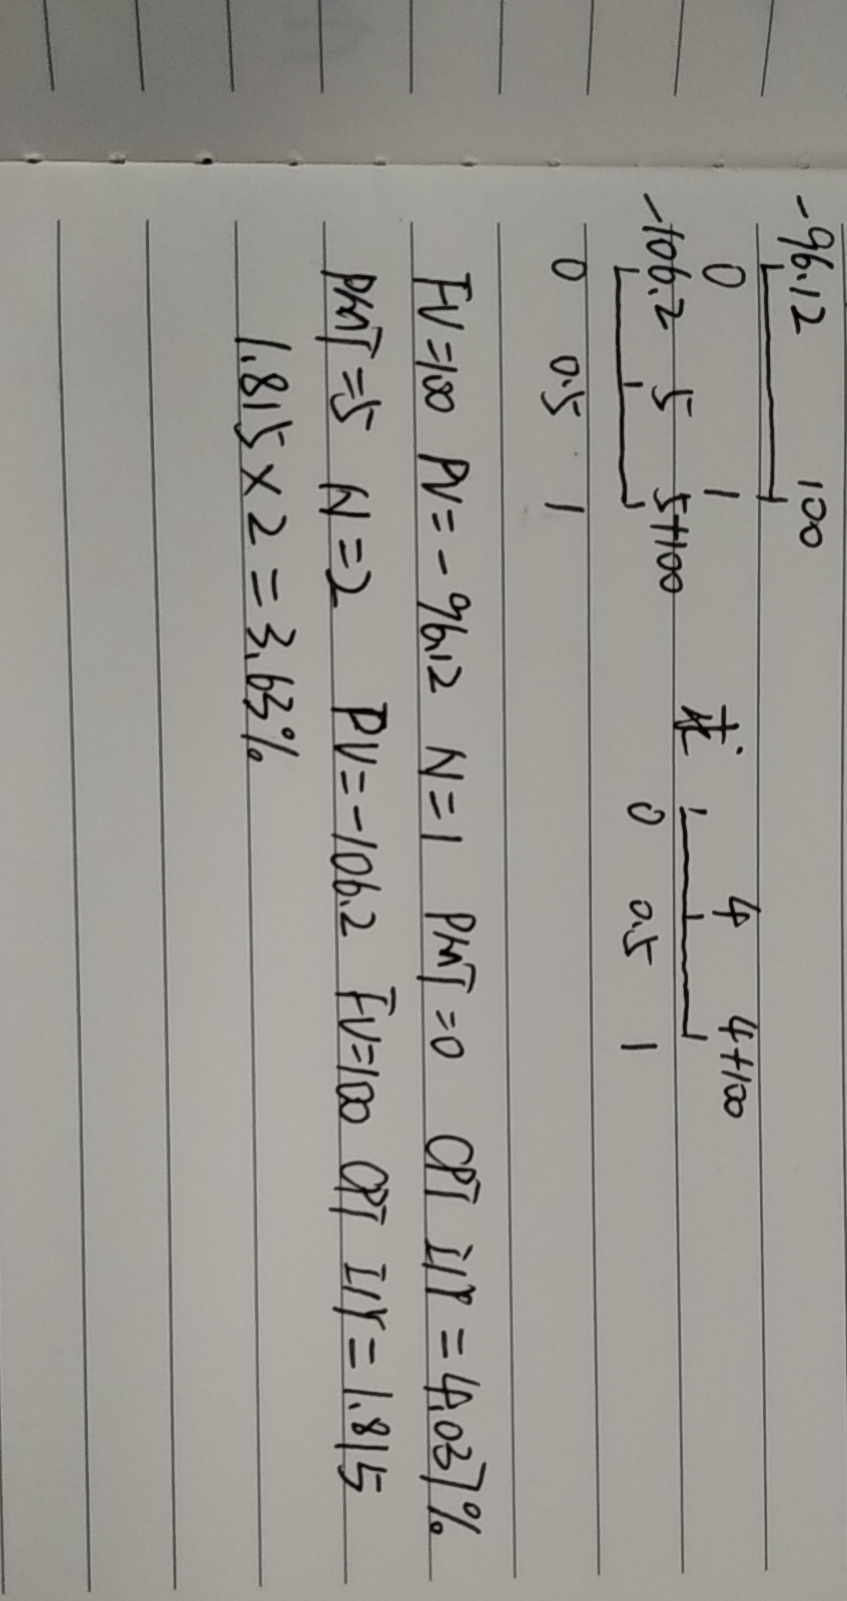 -96.12 100
0 1
-106.2 5 5+100
0 0.5 1
求:
4 4+100
0 0.5 1
FV=100 PV=-96.12 N=1 PMT=0 CPT I/Y=4.037%
PMT=5 N=2 PV=-106.2 FV=100 CPT I/Y=1.815
1.815×2=3.63%